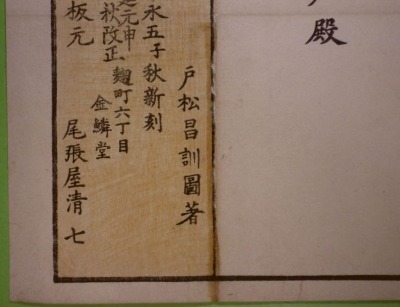 殿
戸松昌訓圖著
永五子秋新刻
元申
秋改正
麹町六丁目
金鱗堂
板元 尾張屋清七